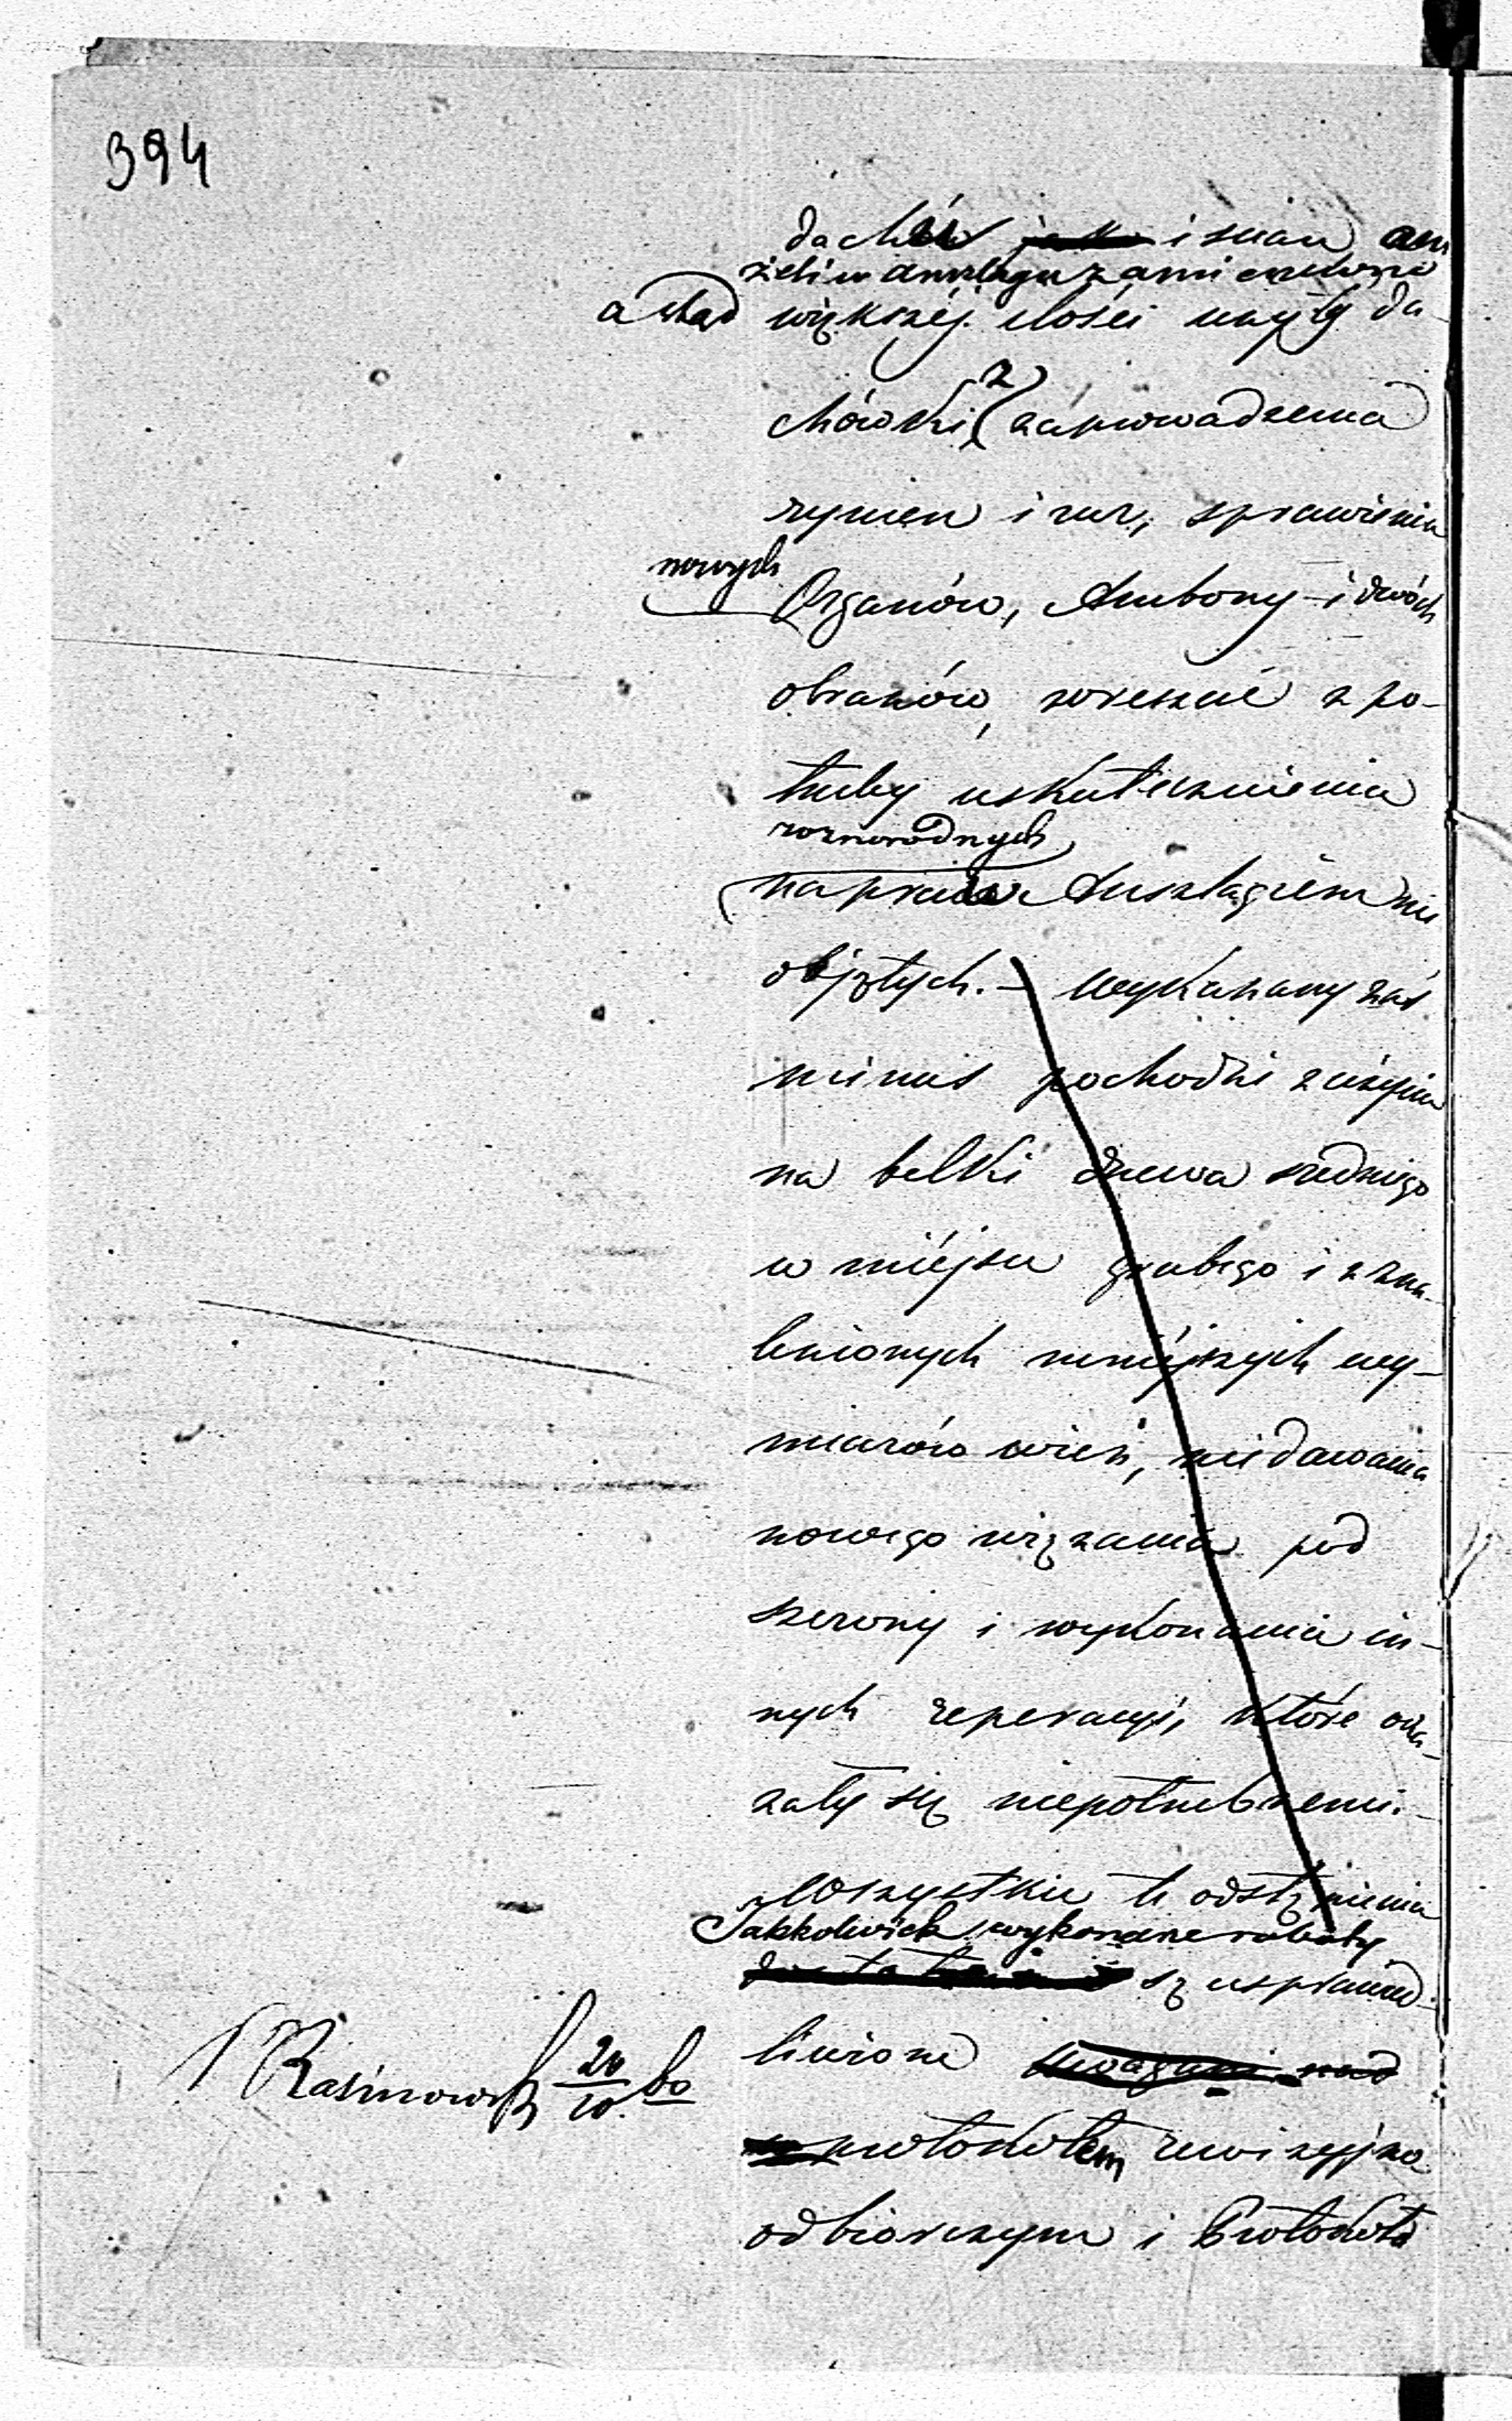 394
dachów jak i ścian ani
żeli w anszlagu zamierzono
a stąd większéj ilości użyty da-
chówki, (z) zaprowadzenia
rynien i rur, sprawienia
nowych
Organów, Ambony i dwóch
obrazów, wreszcie z po-
trzeby uskutecznienia
roznorodnych
napraw Anszlagiem nie
objętych. – Wykazany zaś
minus pochodzi z użycia
na belki drzewa średniego
w miéjsce grubego i z zna-
lezionych mniéjszych wy-
miarów wież, niedawania
nowego wiązania pod
szerony i wykonania in-
nych reperacyi, które oka-
zały się niepotrzebnemi. –
Wszystkie te odstąpienia
Jakkolwiek wykonane roboty
są usprawied-
liwione uwagami nad
protokołem rewizyjno
odbiorczym i Protokóła
Rasinowski 20/10 60